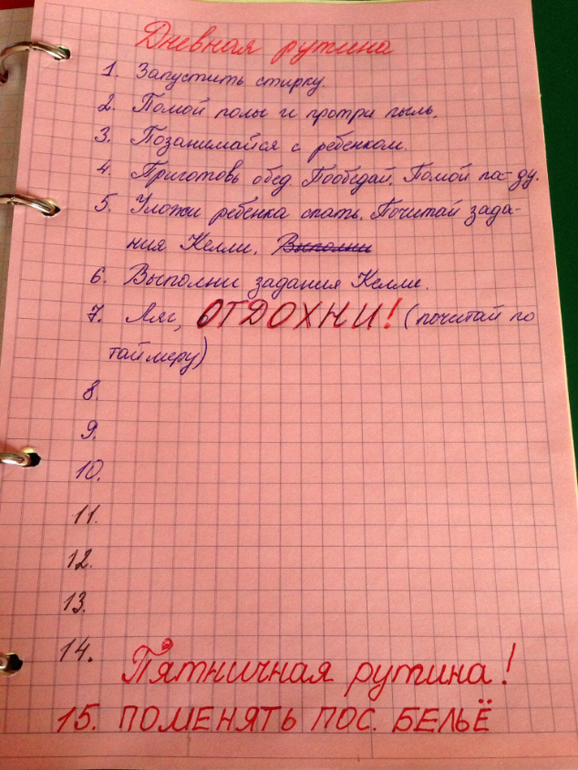 Дневная рутина
1. Запустить стирку.
2. Помой полы и протри пыль.
3. Позанимайся с ребенком.
4. Приготовь обед. Пообедай. Помой по-ду.
5. Уложи ребенка спать. Почитай зада-
ния Келли. Выполни
6. Выполни задания Келли.
7. Ляг, ОТДОХНИ! (почитай по
таймеру)
8.
9.
10.
11.
12.
13.
14.
Пятничная рутина!
15. ПОМЕНЯТЬ ПОС. БЕЛЬЁ